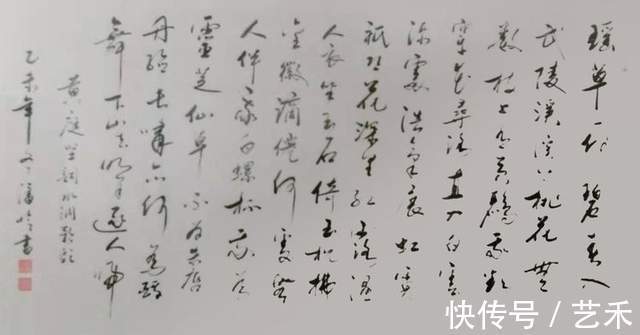 瑶草一何碧春入
武陵溪溪上桃花無
数枝上有黄鹂我欲
穿花尋路直入白雲
深處浩气展虹霓
祇恐花深里红露濕
人衣坐玉石倚玉枕拂
金徽謫仙何處無
人伴我白螺杯我为
靈芝仙草不为朱唇
丹臉长啸亦何为醉
舞下山去明月逐人归
黄庭坚詞水调歌头
乙未年 书
快传号 / 艺禾